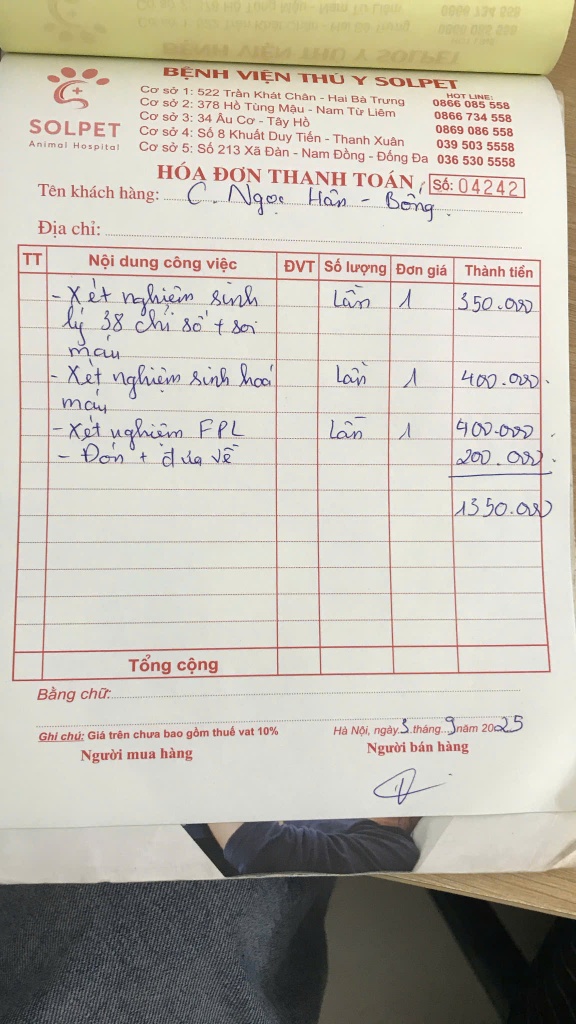 BỆNH VIỆN THÚ Y SOLPET
SOLPET
Animal Hospital
Cơ sở 1: 522 Trần Khát Chân - Hai Bà Trưng
Cơ sở 2: 378 Hồ Tùng Mậu - Nam Từ Liêm
Cơ sở 3: 34 Âu Cơ - Tây Hồ
Cơ sở 4: Số 8 Khuất Duy Tiến - Thanh Xuân
Cơ sở 5: Số 213 Xã Đàn - Nam Đồng - Đống Đa
HOT LINE:
0866 085 558
0866 734 558
0869 086 558
039 503 5558
036 530 5558
HÓA ĐƠN THANH TOÁN
Số: 04242
Tên khách hàng: C. Ngọc Hân - Bông
Địa chỉ:
TT Nội dung công việc ĐVT Số lượng Đơn giá Thành tiền
- Xét nghiệm sinh Lần 1 350.000
lý 38 chỉ số + soi
máu
- Xét nghiệm sinh hoá Lần 1 400.000
máu
- Xét nghiệm FPL Lần 1 400.000
- Đón + đưa về 200.000
1350.000
Tổng cộng
Bằng chữ:
Ghi chú: Giá trên chưa bao gồm thuế vat 10%
Hà Nội, ngày 3 tháng 9 năm 2025
Người mua hàng Người bán hàng